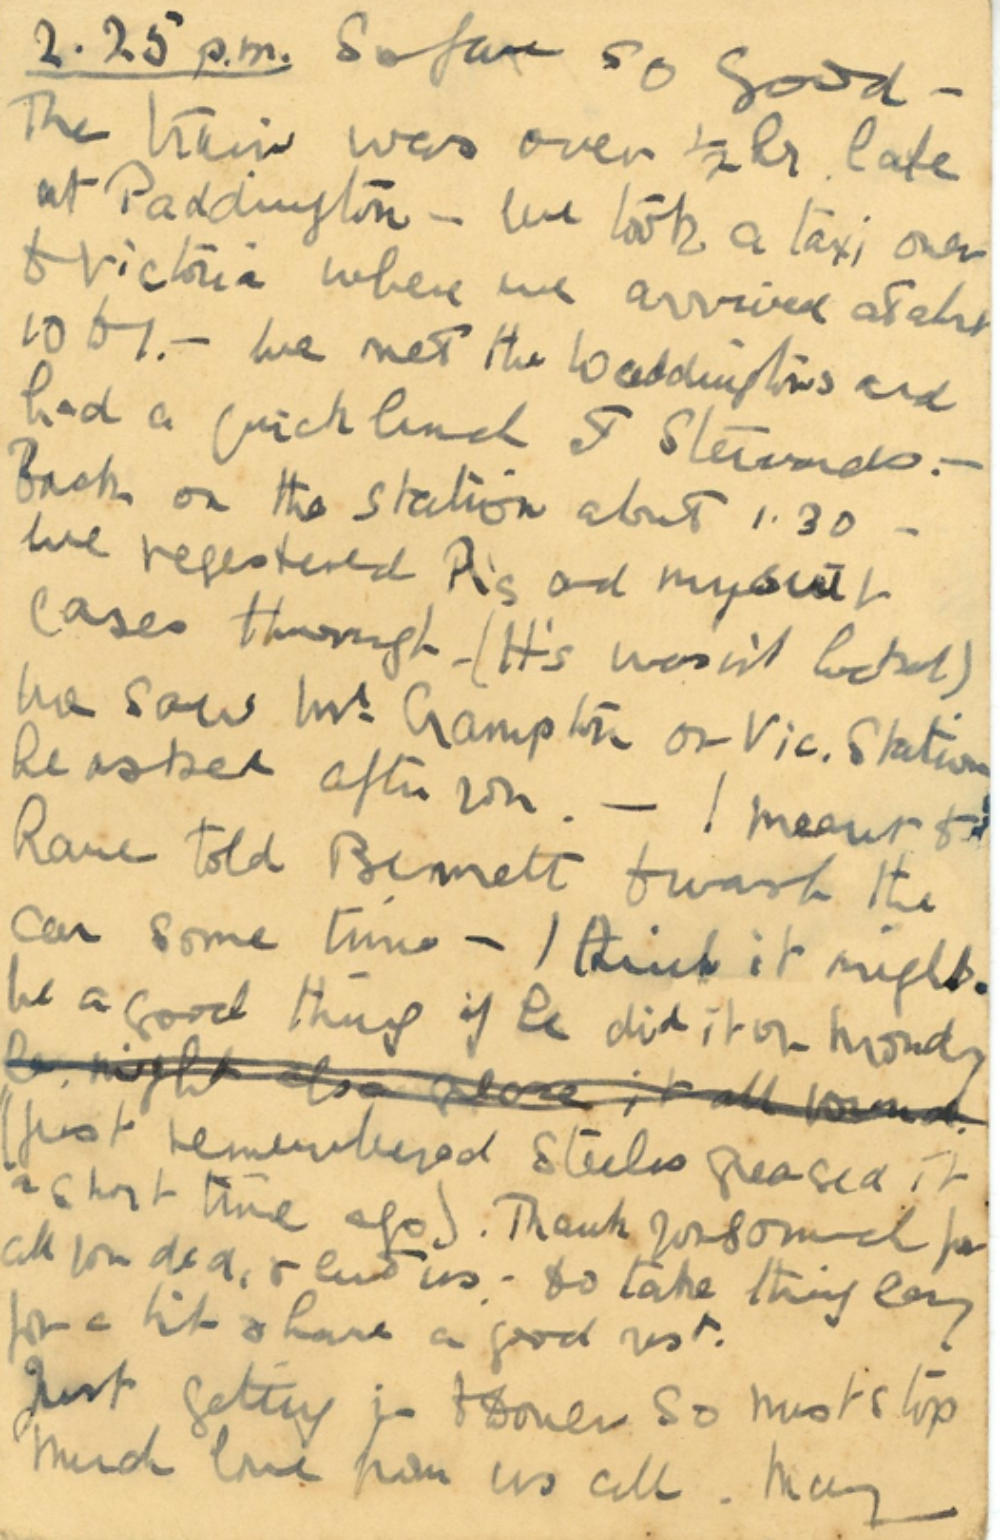 2.25 p.m. So far so good -
The train was over ½ hr. late
at Paddington - we took a taxi over
to Victoria where we arrived at abt
10 to 1. - We met the Waddingtons and
had a quick lunch at Stewards. -
Back on the station about 1.30 -
we regestered P's and my suit
cases through - (H's wasn't locked)
We saw Mr. Crampton on Vic. Station
he asked after you. - I meant to
have told Bennett to wash the
car some time - I think it might
be a good thing if he did it on Monday
he might also grease it all round.
(just remembered Steeles greased it
a short time ago). Thank you so much for
all you did, & lent us. Do take things easy
for a bit & have a good rest.
Just getting in to Dover so must stop
Much love from us all. May